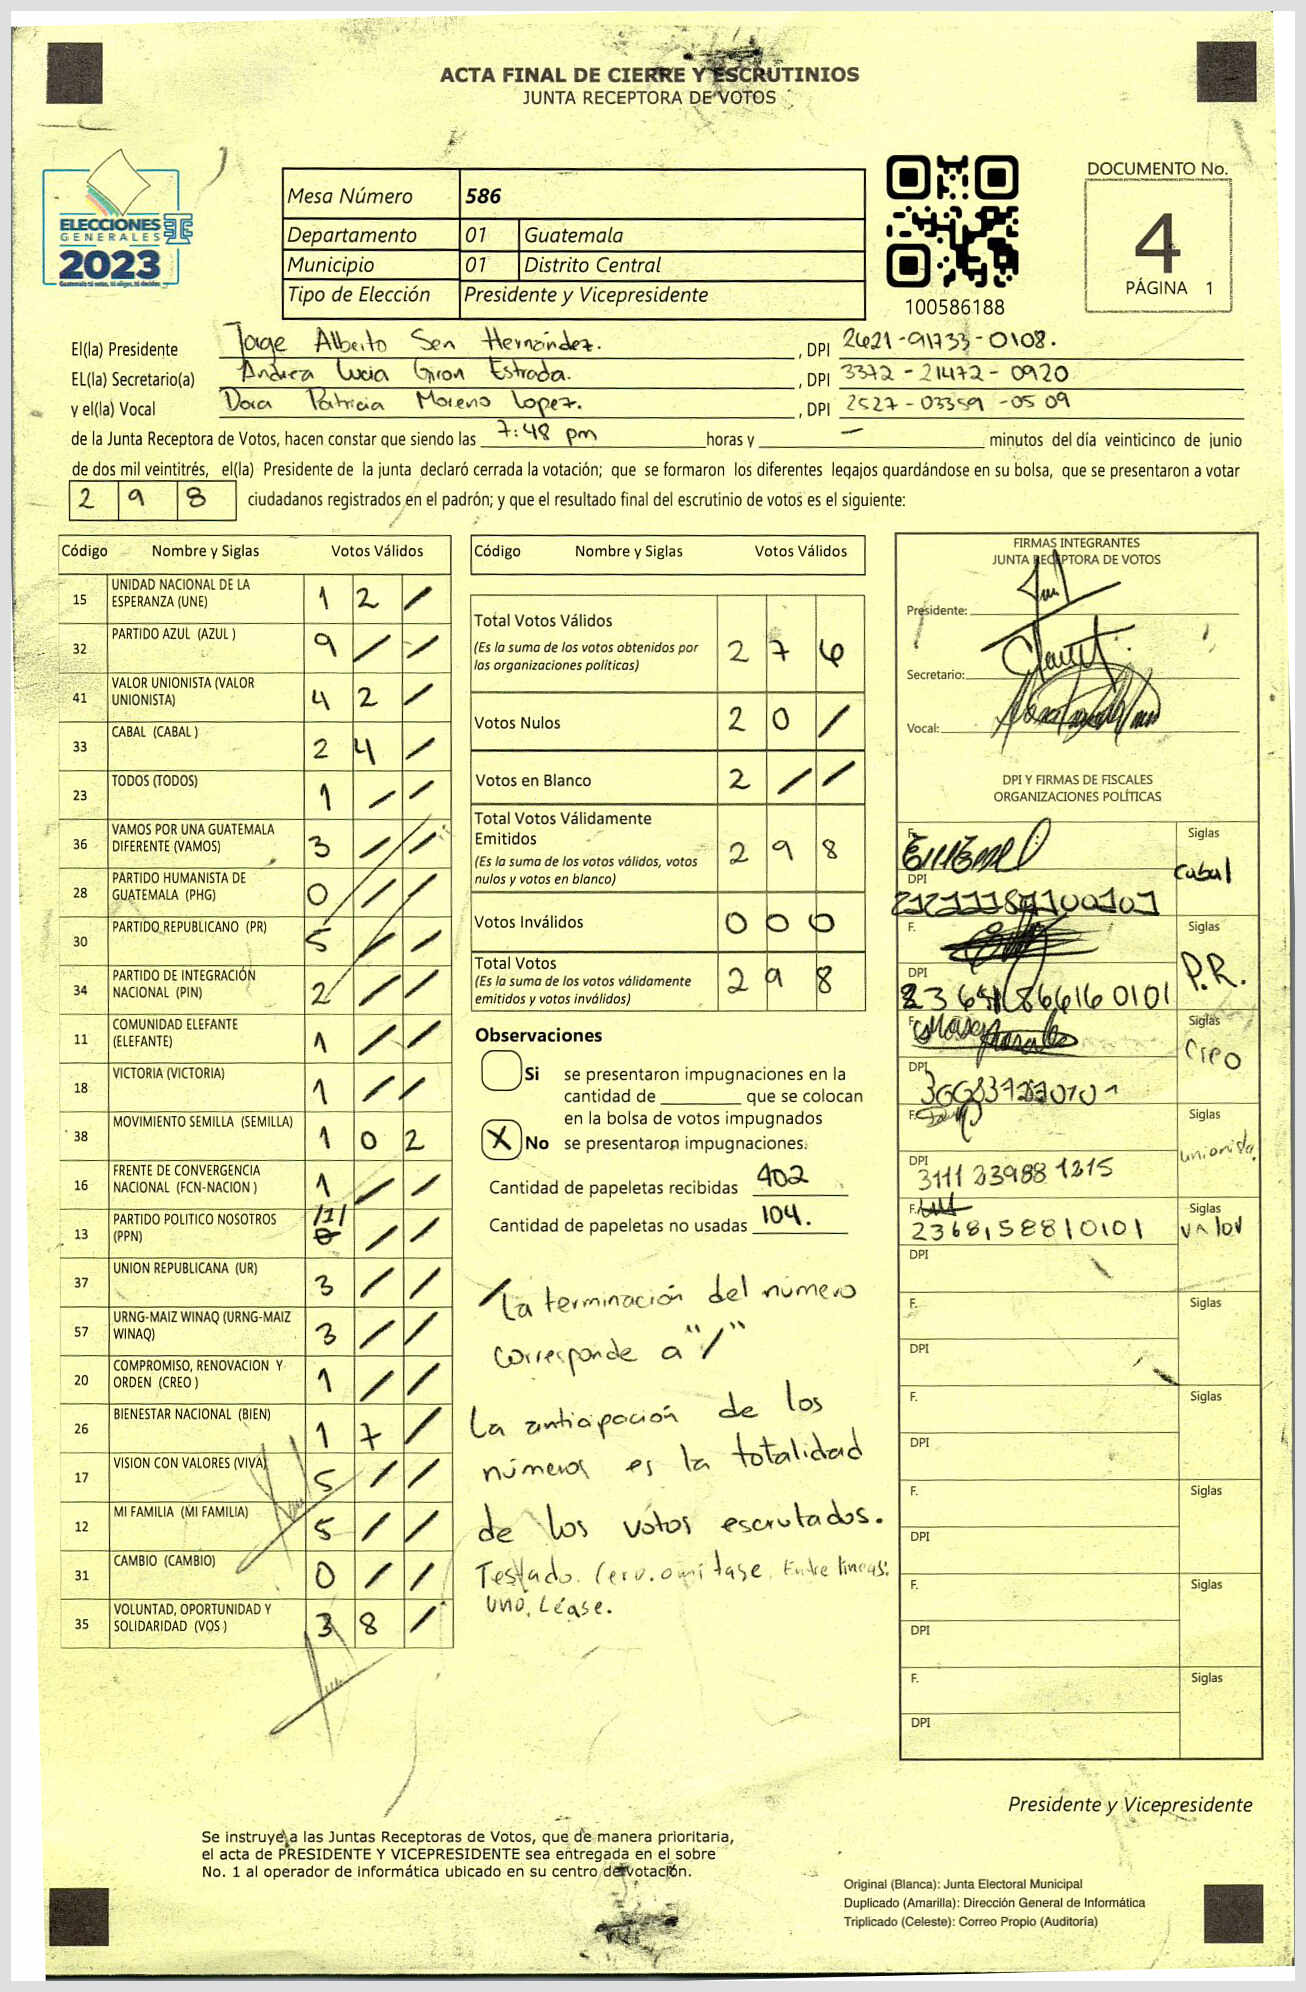 ACTA FINAL DE CIERRE Y ESCRUTINIOS
JUNTA RECEPTORA DE VOTOS
ELECCIONES
GENERALES
2023
Guatemala tú votas, tú eliges, tú decides
Mesa Número 586
Departamento 01 Guatemala
Municipio 01 Distrito Central
Tipo de Elección Presidente y Vicepresidente
100586188
DOCUMENTO No.
4
PÁGINA 1
El(la) Presidente Jorge Alberto Sen Hernández. , DPI 2621-91733-0108.
EL(la) Secretario(a) Andrea Lucia Giron Estrada. , DPI 3372-21472-0920
y el(la) Vocal Dora Patricia Moreno Lopez. , DPI 2527-03359-0509
de la Junta Receptora de Votos, hacen constar que siendo las 7:48 pm horas y — minutos del día veinticinco de junio
de dos mil veintitrés, el(la) Presidente de la junta declaró cerrada la votación; que se formaron los diferentes legajos guardándose en su bolsa, que se presentaron a votar
2 9 8 ciudadanos registrados en el padrón; y que el resultado final del escrutinio de votos es el siguiente:
Código Nombre y Siglas Votos Válidos
15 UNIDAD NACIONAL DE LA ESPERANZA (UNE) 1 2 /
32 PARTIDO AZUL (AZUL ) 9 / /
41 VALOR UNIONISTA (VALOR UNIONISTA) 4 2 /
33 CABAL (CABAL ) 2 4 /
23 TODOS (TODOS) 1 / /
36 VAMOS POR UNA GUATEMALA DIFERENTE (VAMOS) 3 / /
28 PARTIDO HUMANISTA DE GUATEMALA (PHG) 0 / /
30 PARTIDO REPUBLICANO (PR) 5 / /
34 PARTIDO DE INTEGRACIÓN NACIONAL (PIN) 2 / /
11 COMUNIDAD ELEFANTE (ELEFANTE) 1 / /
18 VICTORIA (VICTORIA) 1 / /
38 MOVIMIENTO SEMILLA (SEMILLA) 1 0 2
16 FRENTE DE CONVERGENCIA NACIONAL (FCN-NACION ) 1 / /
13 PARTIDO POLITICO NOSOTROS (PPN) /1/ 0 / /
37 UNION REPUBLICANA (UR) 3 / /
57 URNG-MAIZ WINAQ (URNG-MAIZ WINAQ) 3 / /
20 COMPROMISO, RENOVACION Y ORDEN (CREO ) 1 / /
26 BIENESTAR NACIONAL (BIEN) 1 7 /
17 VISION CON VALORES (VIVA) 5 / /
12 MI FAMILIA (MI FAMILIA) 5 / /
31 CAMBIO (CAMBIO) 0 / /
35 VOLUNTAD, OPORTUNIDAD Y SOLIDARIDAD (VOS ) 3 8 /
Código Nombre y Siglas Votos Válidos
Total Votos Válidos 2 7 6
(Es la suma de los votos obtenidos por
las organizaciones políticas)
Votos Nulos 2 0 /
Votos en Blanco 2 / /
Total Votos Válidamente
Emitidos 2 9 8
(Es la suma de los votos válidos, votos
nulos y votos en blanco)
Votos Inválidos 0 0 0
Total Votos 2 9 8
(Es la suma de los votos válidamente
emitidos y votos inválidos)
Observaciones
Si se presentaron impugnaciones en la
cantidad de ________ que se colocan
en la bolsa de votos impugnados
X No se presentaron impugnaciones.
Cantidad de papeletas recibidas 402
Cantidad de papeletas no usadas 104.
La terminación del número
corresponde a "/"
La anticipación de los
números es la totalidad
de los votos escrutados.
Testado. Cero. omitase. Entre lineas:
uno, Léase.
FIRMAS INTEGRANTES
JUNTA RECEPTORA DE VOTOS
Presidente:
Secretario:
Vocal:
DPI Y FIRMAS DE FISCALES
ORGANIZACIONES POLÍTICAS
F. Siglas
Cabal
DPI
F. Siglas
P.R.
DPI
F. Siglas
Creo
DPI
F. Siglas
unionista.
DPI
3111 23988 1215
F. Siglas
2368,58810101 valor
DPI
F. Siglas
DPI
F. Siglas
DPI
F. Siglas
DPI
F. Siglas
DPI
F. Siglas
DPI
Presidente y Vicepresidente
Se instruye a las Juntas Receptoras de Votos, que de manera prioritaria,
el acta de PRESIDENTE Y VICEPRESIDENTE sea entregada en el sobre
No. 1 al operador de informática ubicado en su centro de votación.
Original (Blanca): Junta Electoral Municipal
Duplicado (Amarilla): Dirección General de Informática
Triplicado (Celeste): Correo Propio (Auditoría)